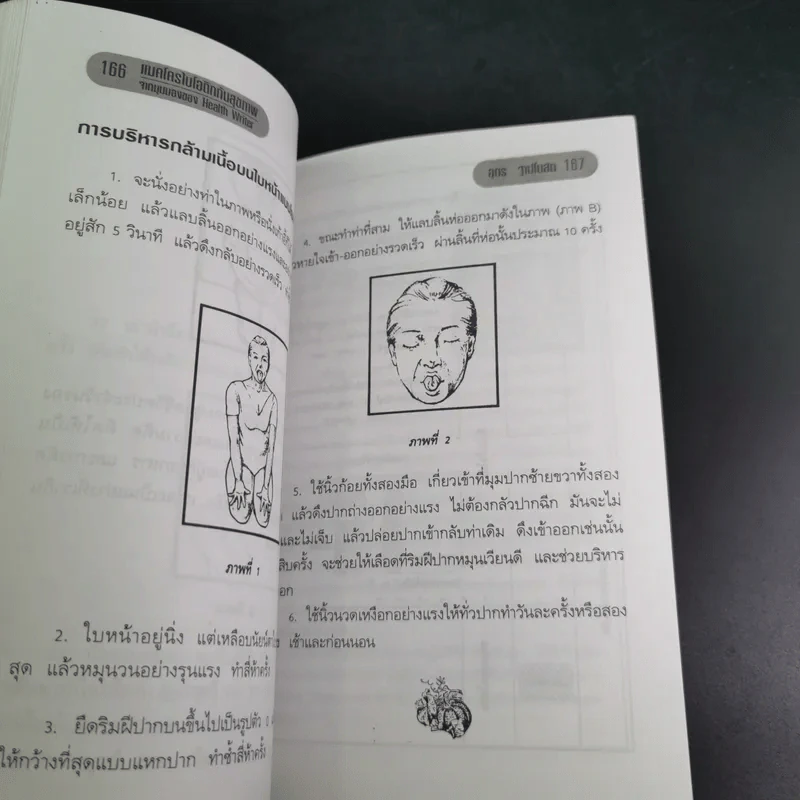 166 แมคโครไบโอติกกับสุขภาพ
จากมุมมองของ Health Writer
การบริหารกล้ามเนื้อบนใบหน้า
1. จะนั่งอย่างท่าในภาพหรือนั่ง
เล็กน้อย แล้วแลบลิ้นออกอย่างแรง
อยู่สัก 5 วินาที แล้วดึงกลับอย่างรวดเร็ว
ภาพที่ 1
2. ใบหน้าอยู่นิ่ง แต่เหลือบนัยน์
สุด แล้วหมุนวนอย่างรุนแรง ทำสี่ห้าครั้ง
3. ยืดริมฝีปากบนขึ้นไปเป็นรูปตัว O
ให้กว้างที่สุดแบบแหกปาก ทำซ้ำสี่ห้าครั้ง
167
4. ขณะทำท่าที่สาม ให้แลบลิ้นห่อออกมาดังในภาพ (ภาพ B)
หายใจเข้า-ออกอย่างรวดเร็ว ผ่านลิ้นที่ห่อนั้นประมาณ 10 ครั้ง
ภาพที่ 2
5. ใช้นิ้วก้อยทั้งสองมือ เกี่ยวเข้าที่มุมปากซ้ายขวาทั้งสอง
แล้วดึงปากถ่างออกอย่างแรง ไม่ต้องกลัวปากฉีก มันจะไม่
และไม่เจ็บ แล้วปล่อยปากเข้ากลับท่าเดิม ดึงเข้าออกเช่นนั้น
สิบครั้ง จะช่วยให้เลือดที่ริมฝีปากหมุนเวียนดี และช่วยบริหาร
อก
6. ใช้นิ้วนวดเหงือกอย่างแรงให้ทั่วปากทำวันละครั้งหรือสอง
เช้าและก่อนนอน